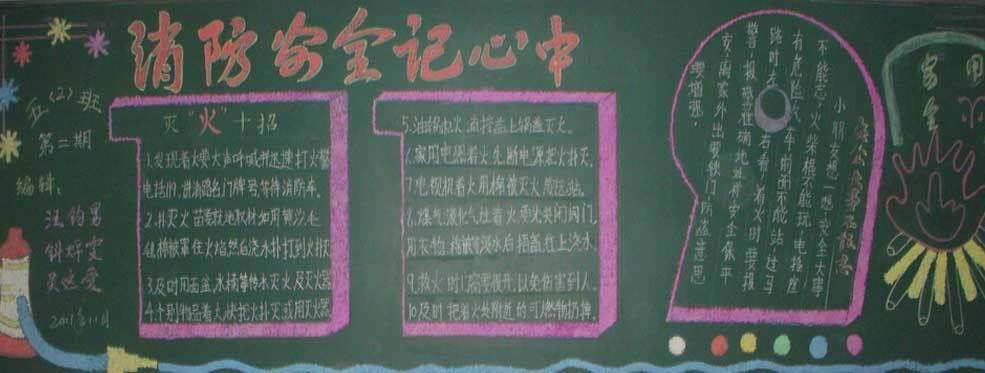 消防安全记心中
五(2)班
第二期
编辑：
2011年11月
灭“火”十招
1.发现着火要大声呼喊并迅速打火警
电话119,讲清路名门牌号等待消防车。
2.扑灭火苗要就地取材如用黄沙毛
毯棉被罩住火焰然后浇水扑打到火扑灭
3.及时用面盆、水桶等传水灭火及灭火器
4.个别物品着火快把火扑灭或用灭火器
5.油锅起火直接盖上锅盖灭火。
6.家用电器着火先断电源把火扑灭。
7.电视机着火用棉被灭火
8.煤气液化气灶着火要先关闭阀门,
用衣物,棉被浸水后捂盖往上浇水。
9.救火时门窗要慢开,以免伤害到人。
10.及时把着火处附近的可燃物扔掉。
小朋友想一想安全大事
不能忘,火柴棍不能玩,电插座
有危险,汽车前面不能站,过马
路时左右看,着火时要报
警,报
安,离家外出要锁门,防盗意思
要增强。
安全
家用